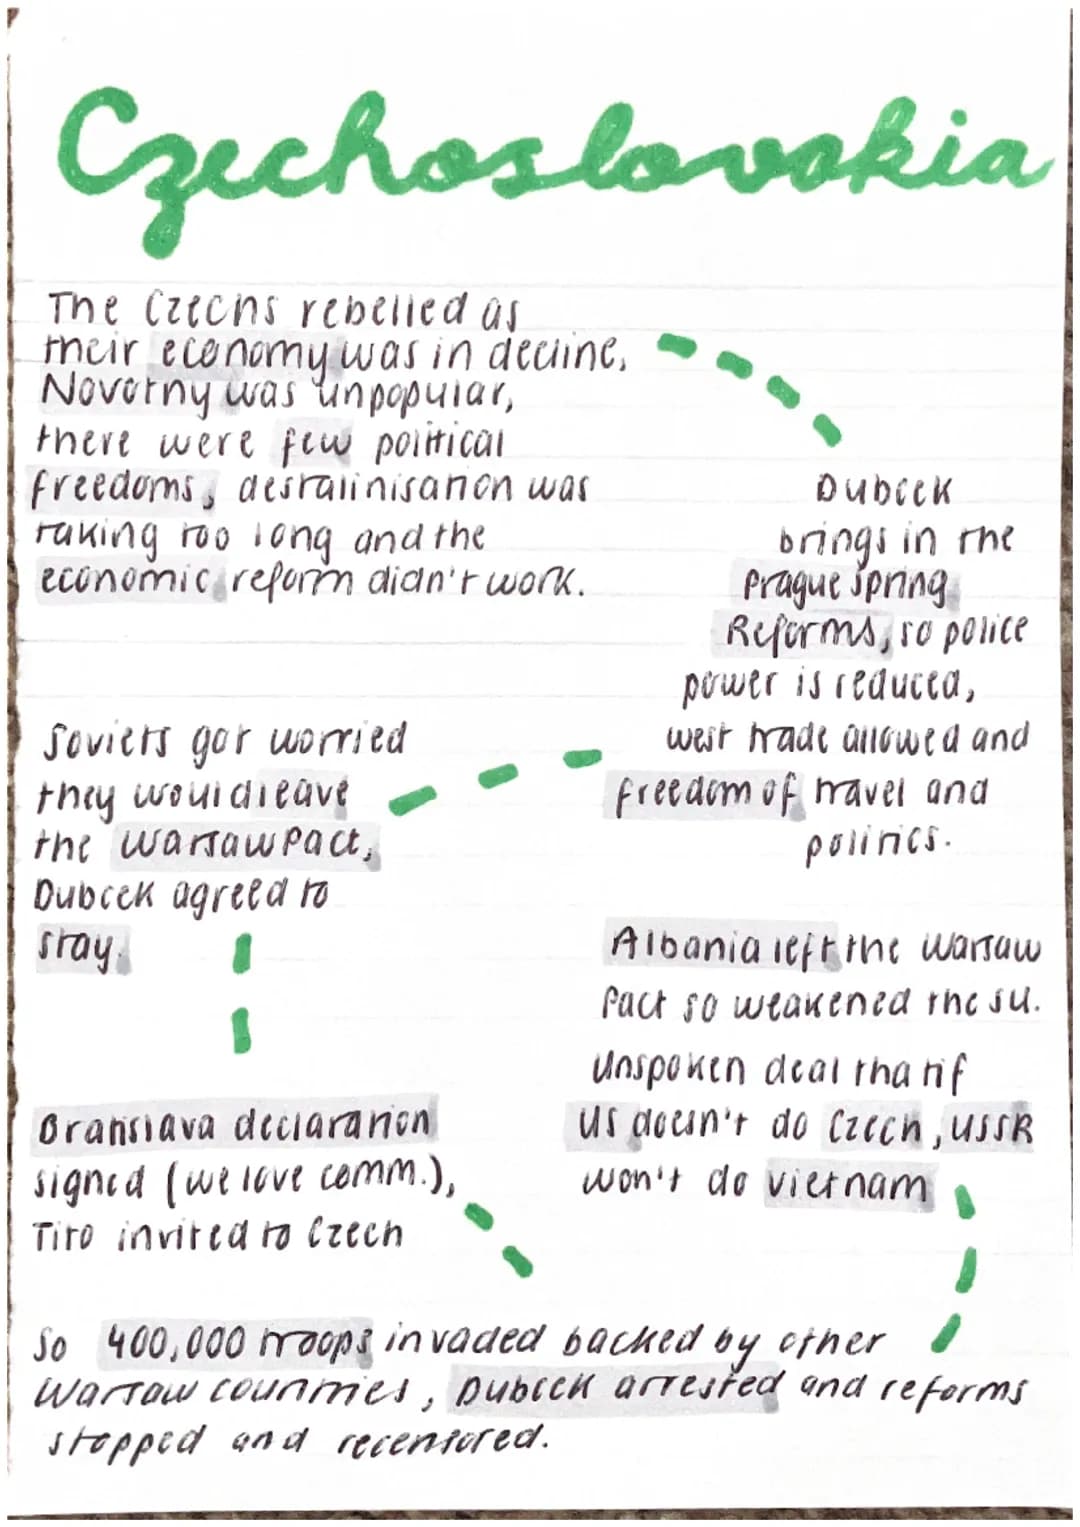 Czechoslovakia
The Czechs rebelled as
their economy was in decline,
Novotny was unpopular,
there were few political
freedoms, destalinisation was
taking too long and the
economic reform didn't work.
Dubcek
brings in the
Prague Spring
Reforms, so police
power is reduced,
west trade allowed and
freedom of travel and
politics.
Soviets got worried
they would leave
the Warsaw Pact,
Dubcek agreed to
stay.
Albania left the Warsaw
Pact so weakened the SU.
Unspoken deal that if
US doesn't do Czech, USSR
won't do Vietnam
Bratislava declaration
signed (we love comm.),
Tito invited to Czech
So 400,000 troops invaded backed by other
Warsaw countries, Dubcek arrested and reforms
stopped and recensored.